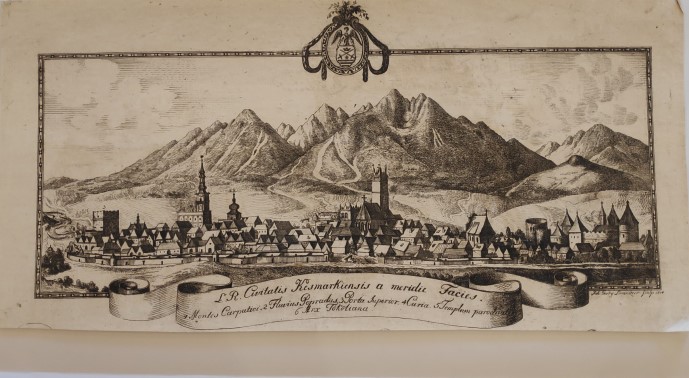 L. R. Civitatis Kismarkiensis a meridie Facies.
1 Montes Carpatici. 2 Fluvius Popradus. 3 Porta Superior. 4 Curia. 5 Templum paroch
6 Arx Tökoliana